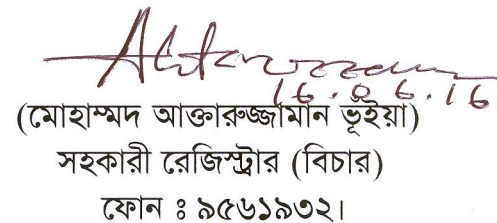 16.06.16
(মোহাম্মদ আক্তারুজ্জামান ভূঁইয়া)
সহকারী রেজিস্ট্রার (বিচার)
ফোন ঃ ৯৫৬১৯৩২।